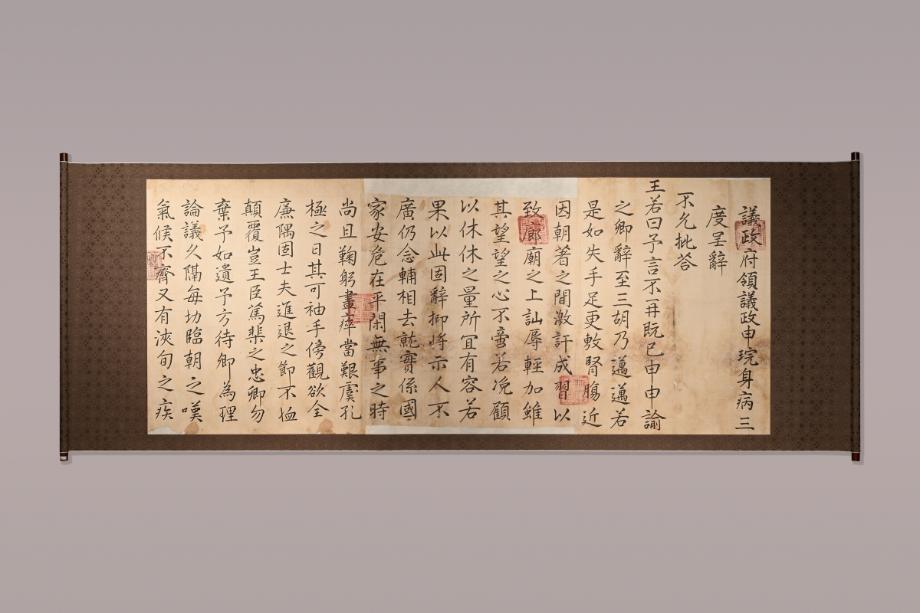 議政府領議政申琓身病三
度呈辭
不允批答
王若曰予言不再既已申申諭
之卿辭至三胡乃邁邁若
是如失手足更敷腎腸近
因朝著之間激訐成習以
致廊廟之上訕辱輕加雖
其望望之心不啻若浼顧
以休休之量所宜有容若
果以此固辭抑將示人不
廣仍念輔相去就實係國
家安危在平閑無事之時
尚且鞠躬盡瘁當艱虞孔
極之日其可袖手傍觀欲全
廉隅固士夫進退之節不恤
顛覆豈王臣篤棐之忠卿勿
棄予如遺予方待卿為理
論議久隔每切臨朝之嘆
氣候不齊又有浹旬之疾